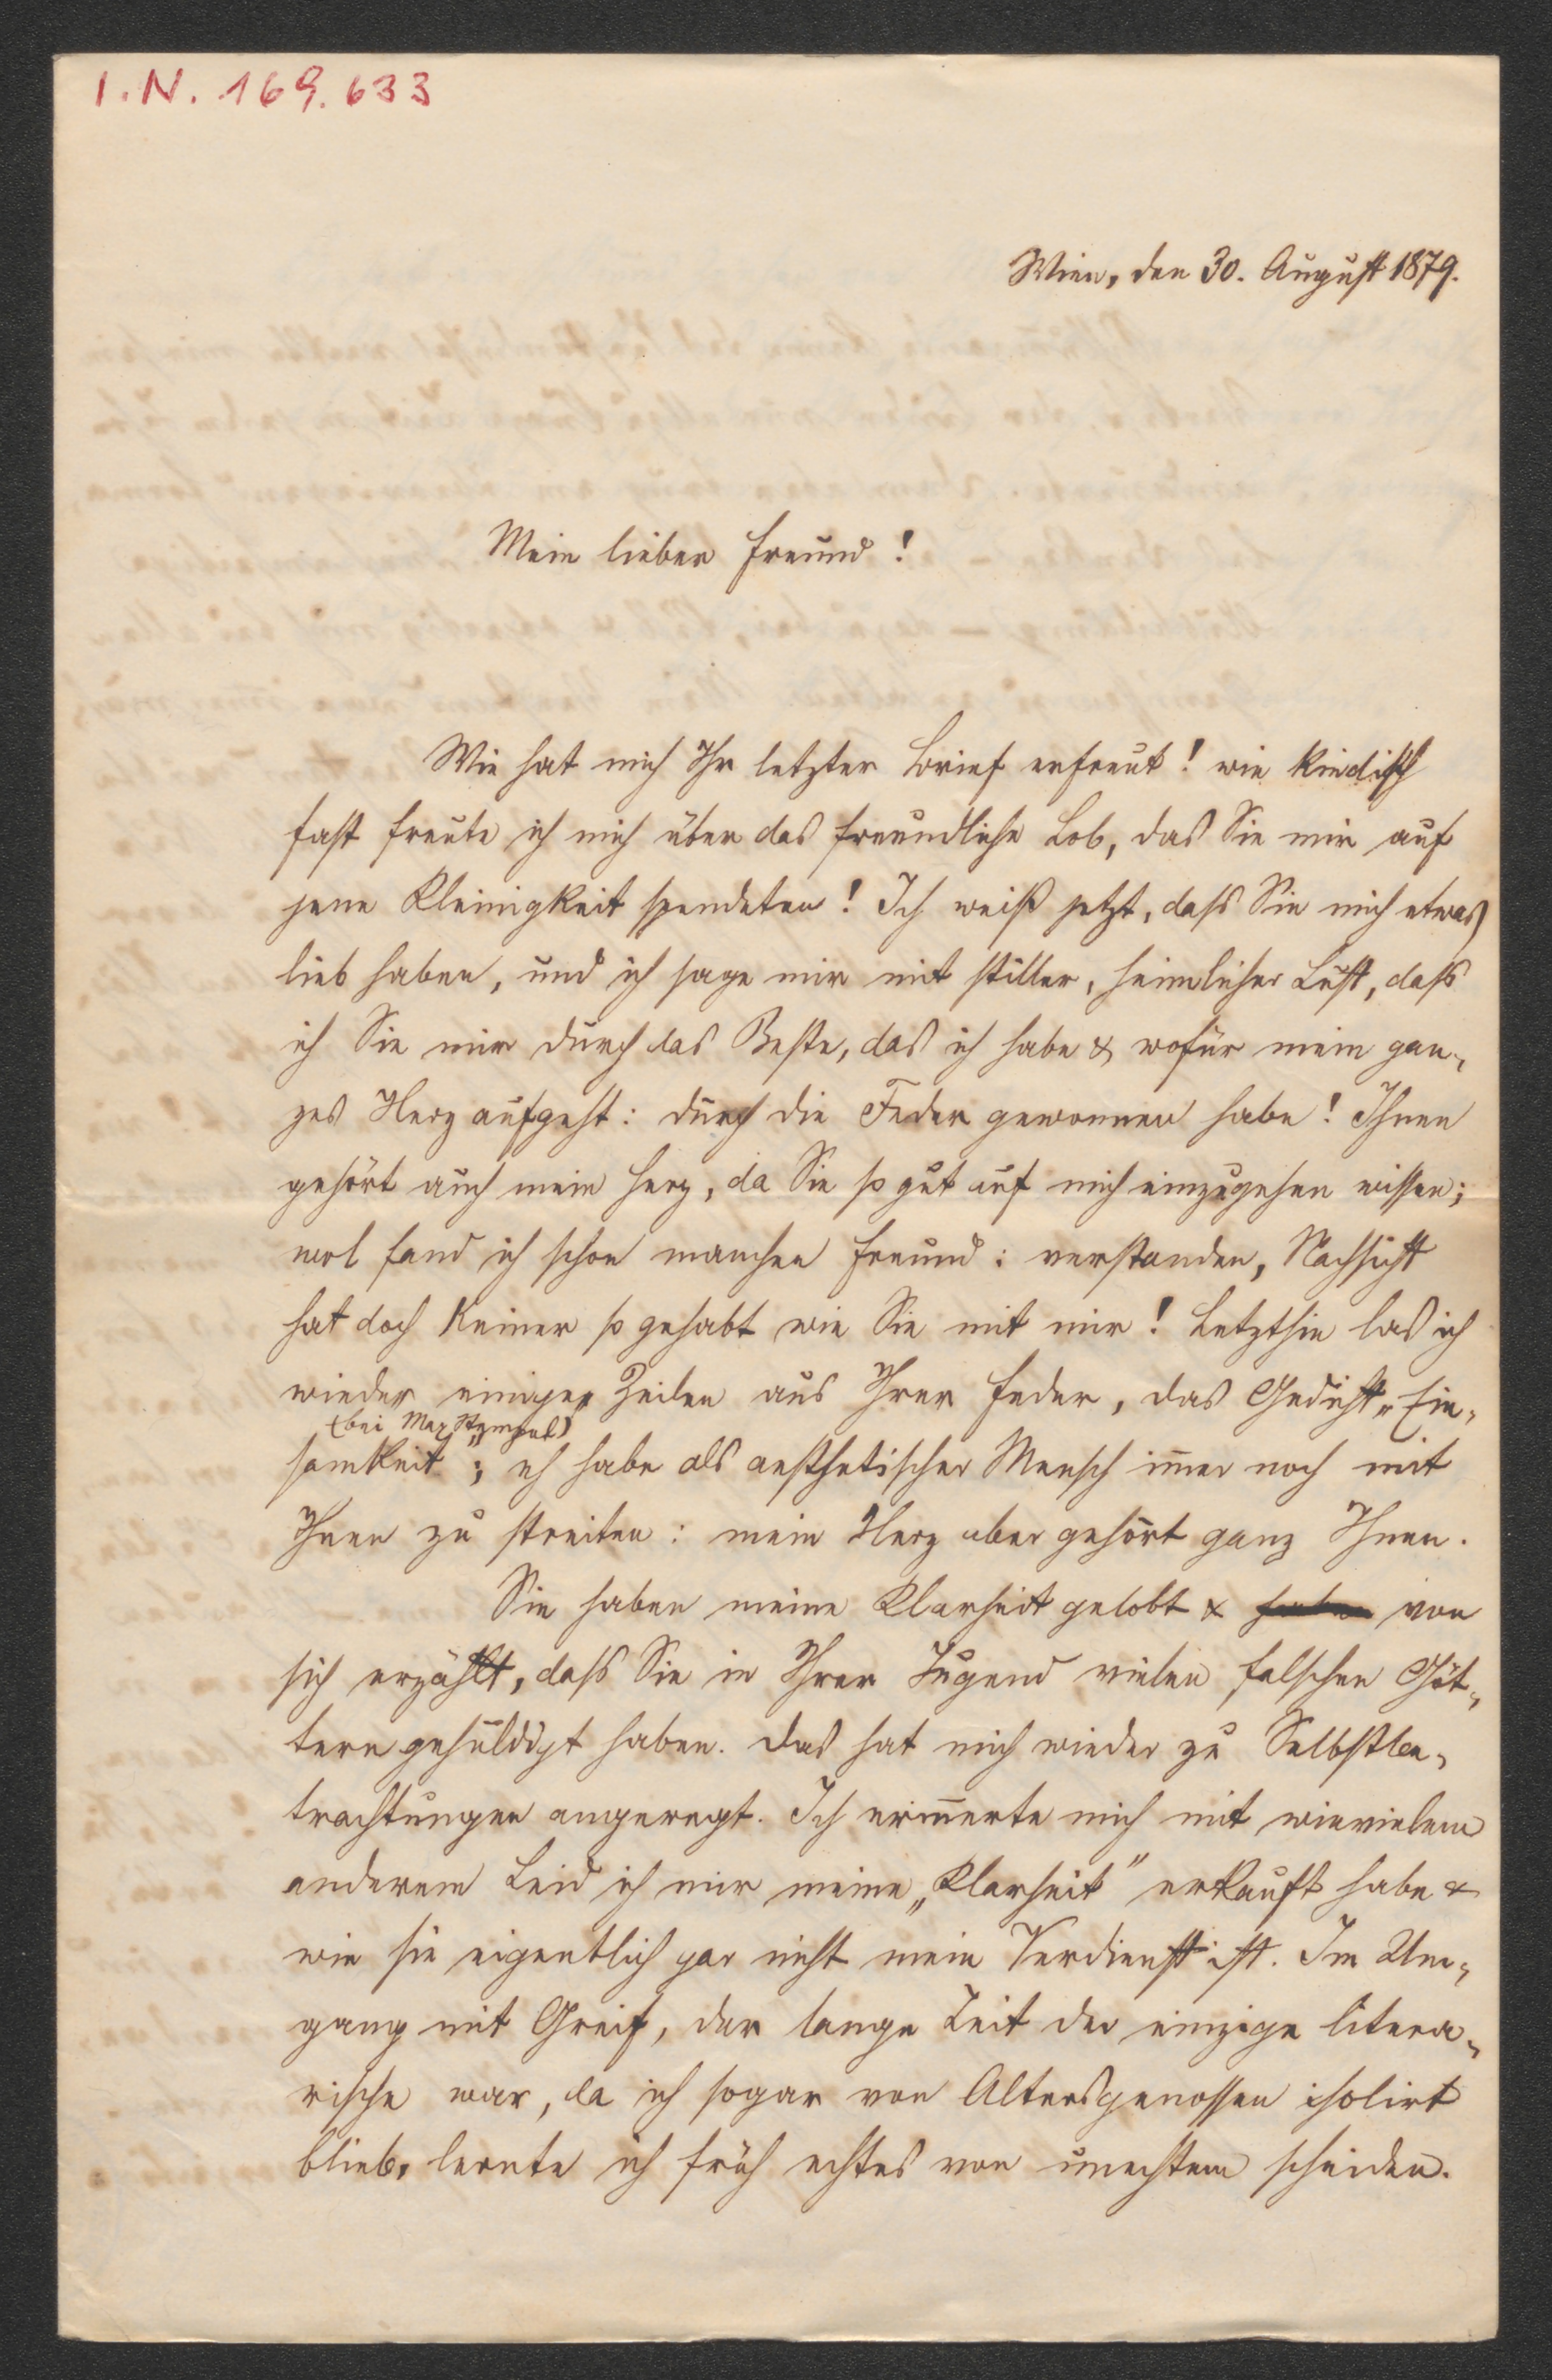 I.N. 169.633
Wien, den 30. August 1879.
Mein lieber Freund!
Wie hat mich Ihr letzter Brief erfreut! wie kindisch
fast freute ich mich über das freundliche Lob, das Sie mir auf
jene Kleinigkeit spendeten! Ich weiß jetzt, dass Sie mich etwas
lieb haben, und ich sage mir mit stiller, heimlicher Lust, dass
ich Sie mir durch das Beste, das ich habe & wofür mein gan-
zes Herz aufgeht: durch die Feder gewonnen habe! Ihnen
gehört auch mein Herz, da Sie so gut auf mich einzugehen wissen;
wol fand ich schon manchen Freund: verstanden, Nachsicht
hat doch Keiner so gehabt wie Sie mit mir! Letzthin las ich
wieder einige Zeilen aus Ihrer Feder, das Gedicht „Ein-
(bei Max Stempel)
samkeit"; ich habe als aesthetischer Mensch im̅er noch mit
Ihnen zu streiten: mein Herz aber gehört ganz Ihnen.
Sie haben meine Klarheit gelobt & haben von
sich erzählt, dass Sie in Ihrer Jugend vielen falschen Göt-
tern gehuldigt haben. Das hat mich wieder zu Selbstbe-
trachtungen angeregt. Ich erin̅erte mich mit wievielem
anderem Leid ich mir meine „Klarheit" erkauft habe &
wie sie eigentlich gar nicht mein Verdienst ist. Im Um-
gang mit Greif, der lange Zeit der einzige litera-
rische war, da ich sogar von Altersgenossen isolirt
blieb, lernte ich früh echtes von unechtem scheiden.